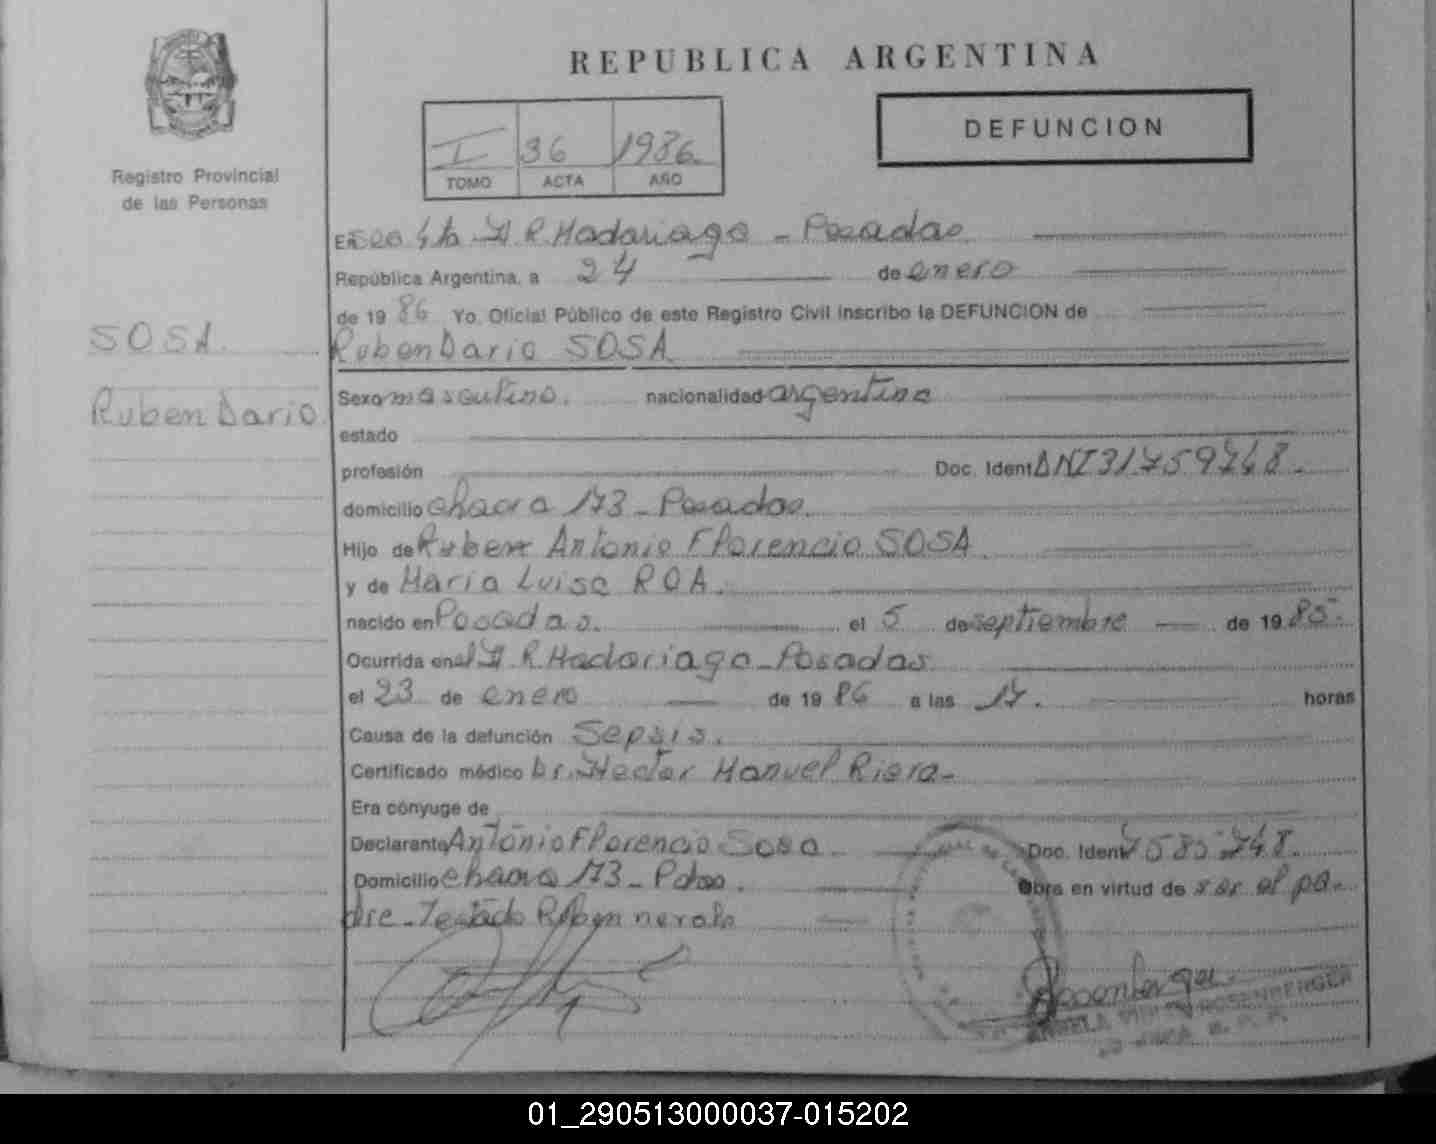 REPUBLICA ARGENTINA
DEFUNCION
I 36 1986.
TOMO ACTA AÑO
Registro Provincial
de las Personas
En R. Madariaga - Posadas
República Argentina, a 24 de enero
de 19 86 Yo, Oficial Público de este Registro Civil inscribo la DEFUNCION de
SOSA.
Ruben Dario SOSA
Ruben Dario
Sexo masculino. nacionalidad argentina
estado
profesión Doc. Ident DNI 31.759.748.
domicilio chacra 173 - Posadas.
Hijo de Ruben Antonio Florencio SOSA
y de Maria Luisa ROA.
nacido en Posadas. el 5 de septiembre de 19 85.
Ocurrida en el H. R. Madariaga - Posadas
el 23 de enero de 19 86 a las 17. horas
Causa de la defunción Sepsis.
Certificado médico Dr. Hector Manuel Riera-
Era cónyuge de
Declarante Antonio Florencio Sosa Doc. Ident 7585748.
Domicilio chacra 173 - Pdas. Obra en virtud de ser el pa-
dre - Testado Ruben no vale
Rosenberger
ROSENBERGER
01_290513000037-015202